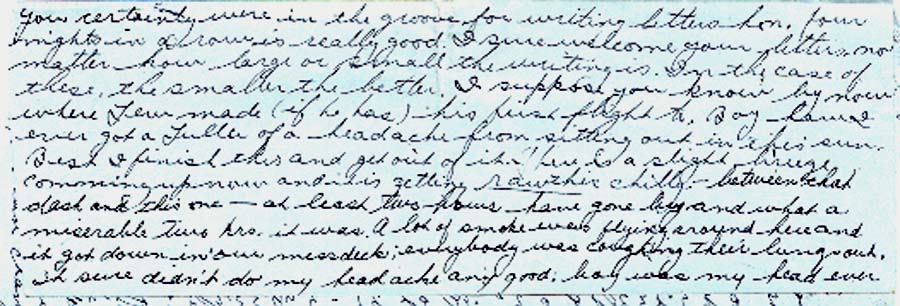 You certainly were in the groove for writing letters hon. Four
nights in a row is really good. I sure welcome your letters no
matter how large or small the writing is. In the case of
these, the smaller the better. I suppose you know by now
where Lew made (if he has) his first flight to. Boy have I
ever got a Luller of a headache from sitting out in this sun.
Best I finish this and get out of it. There is a slight breeze
comming up now and it is getting rawther chilly - between that
dash and this one — at least two hours have gone by and what a
miserable two hrs. it was. A lot of smoke was flying around here and
it got down in our messdeck; everybody was coughing their lungs out.
it sure didn't do my headache any good. boy was my head ever